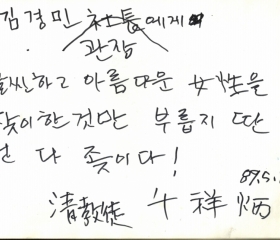 김경민 社長에게
관장
늘씬하고 아름다운 女性을
맞이한것만 부릅지 딴
건 다 좆이다!
87.5.
清教徒 千祥炳